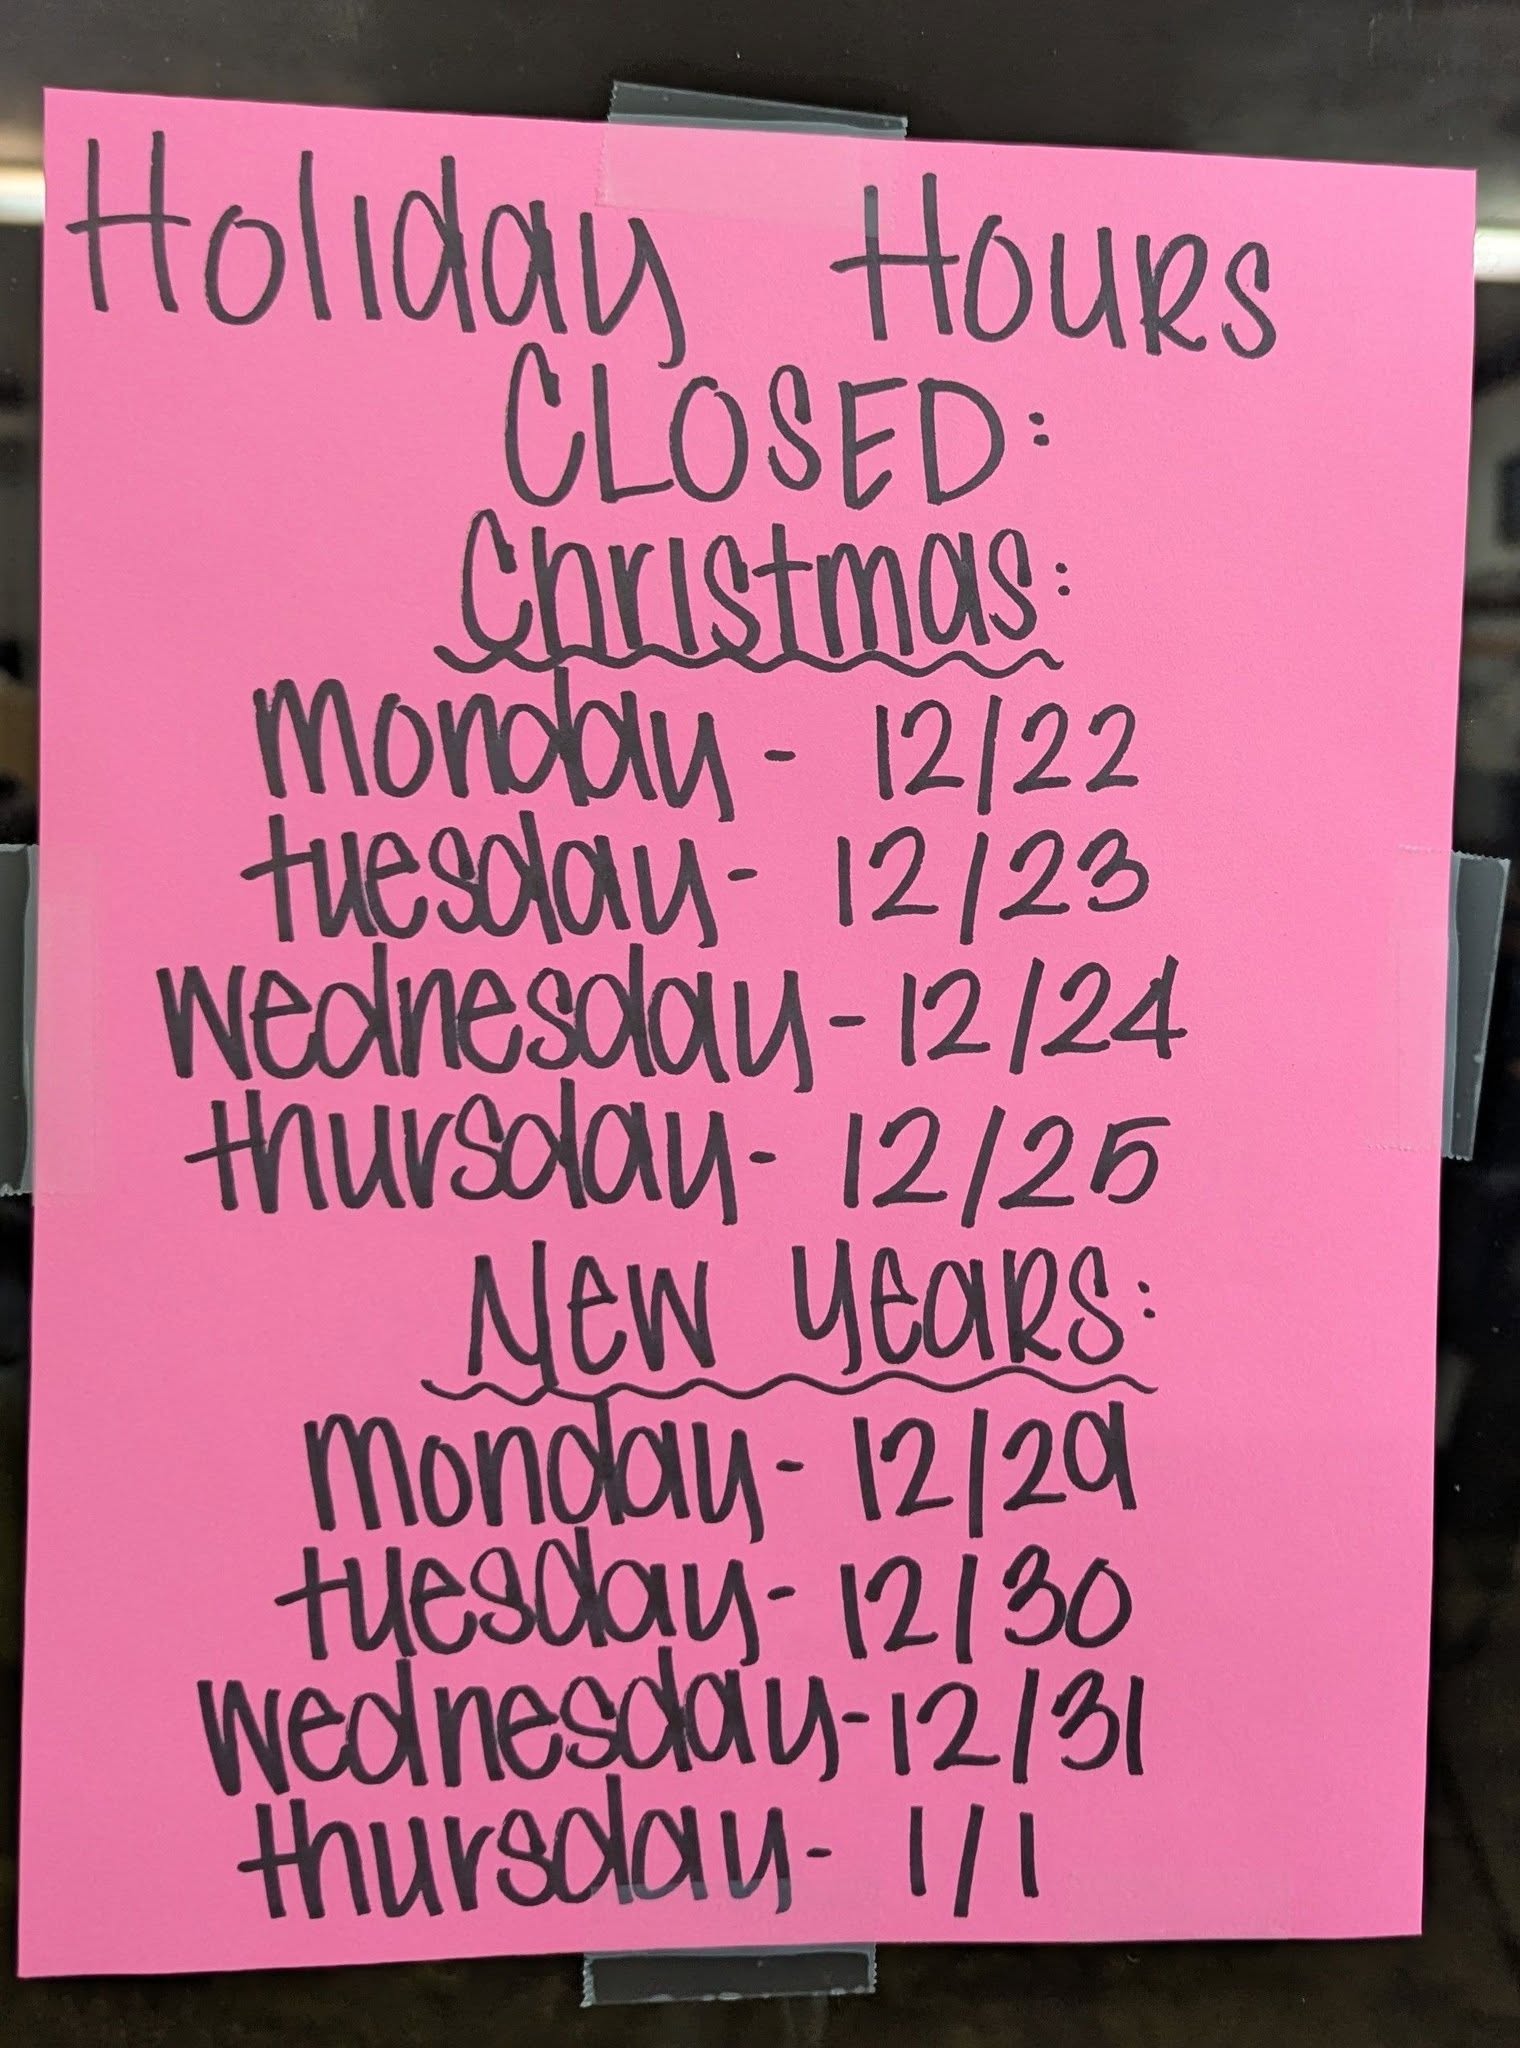 Holiday Hours
CLOSED:
Christmas:
monday - 12/22
tuesday - 12/23
wednesday - 12/24
thursday - 12/25
New Years:
monday - 12/29
tuesday - 12/30
wednesday - 12/31
thursday - 1/1